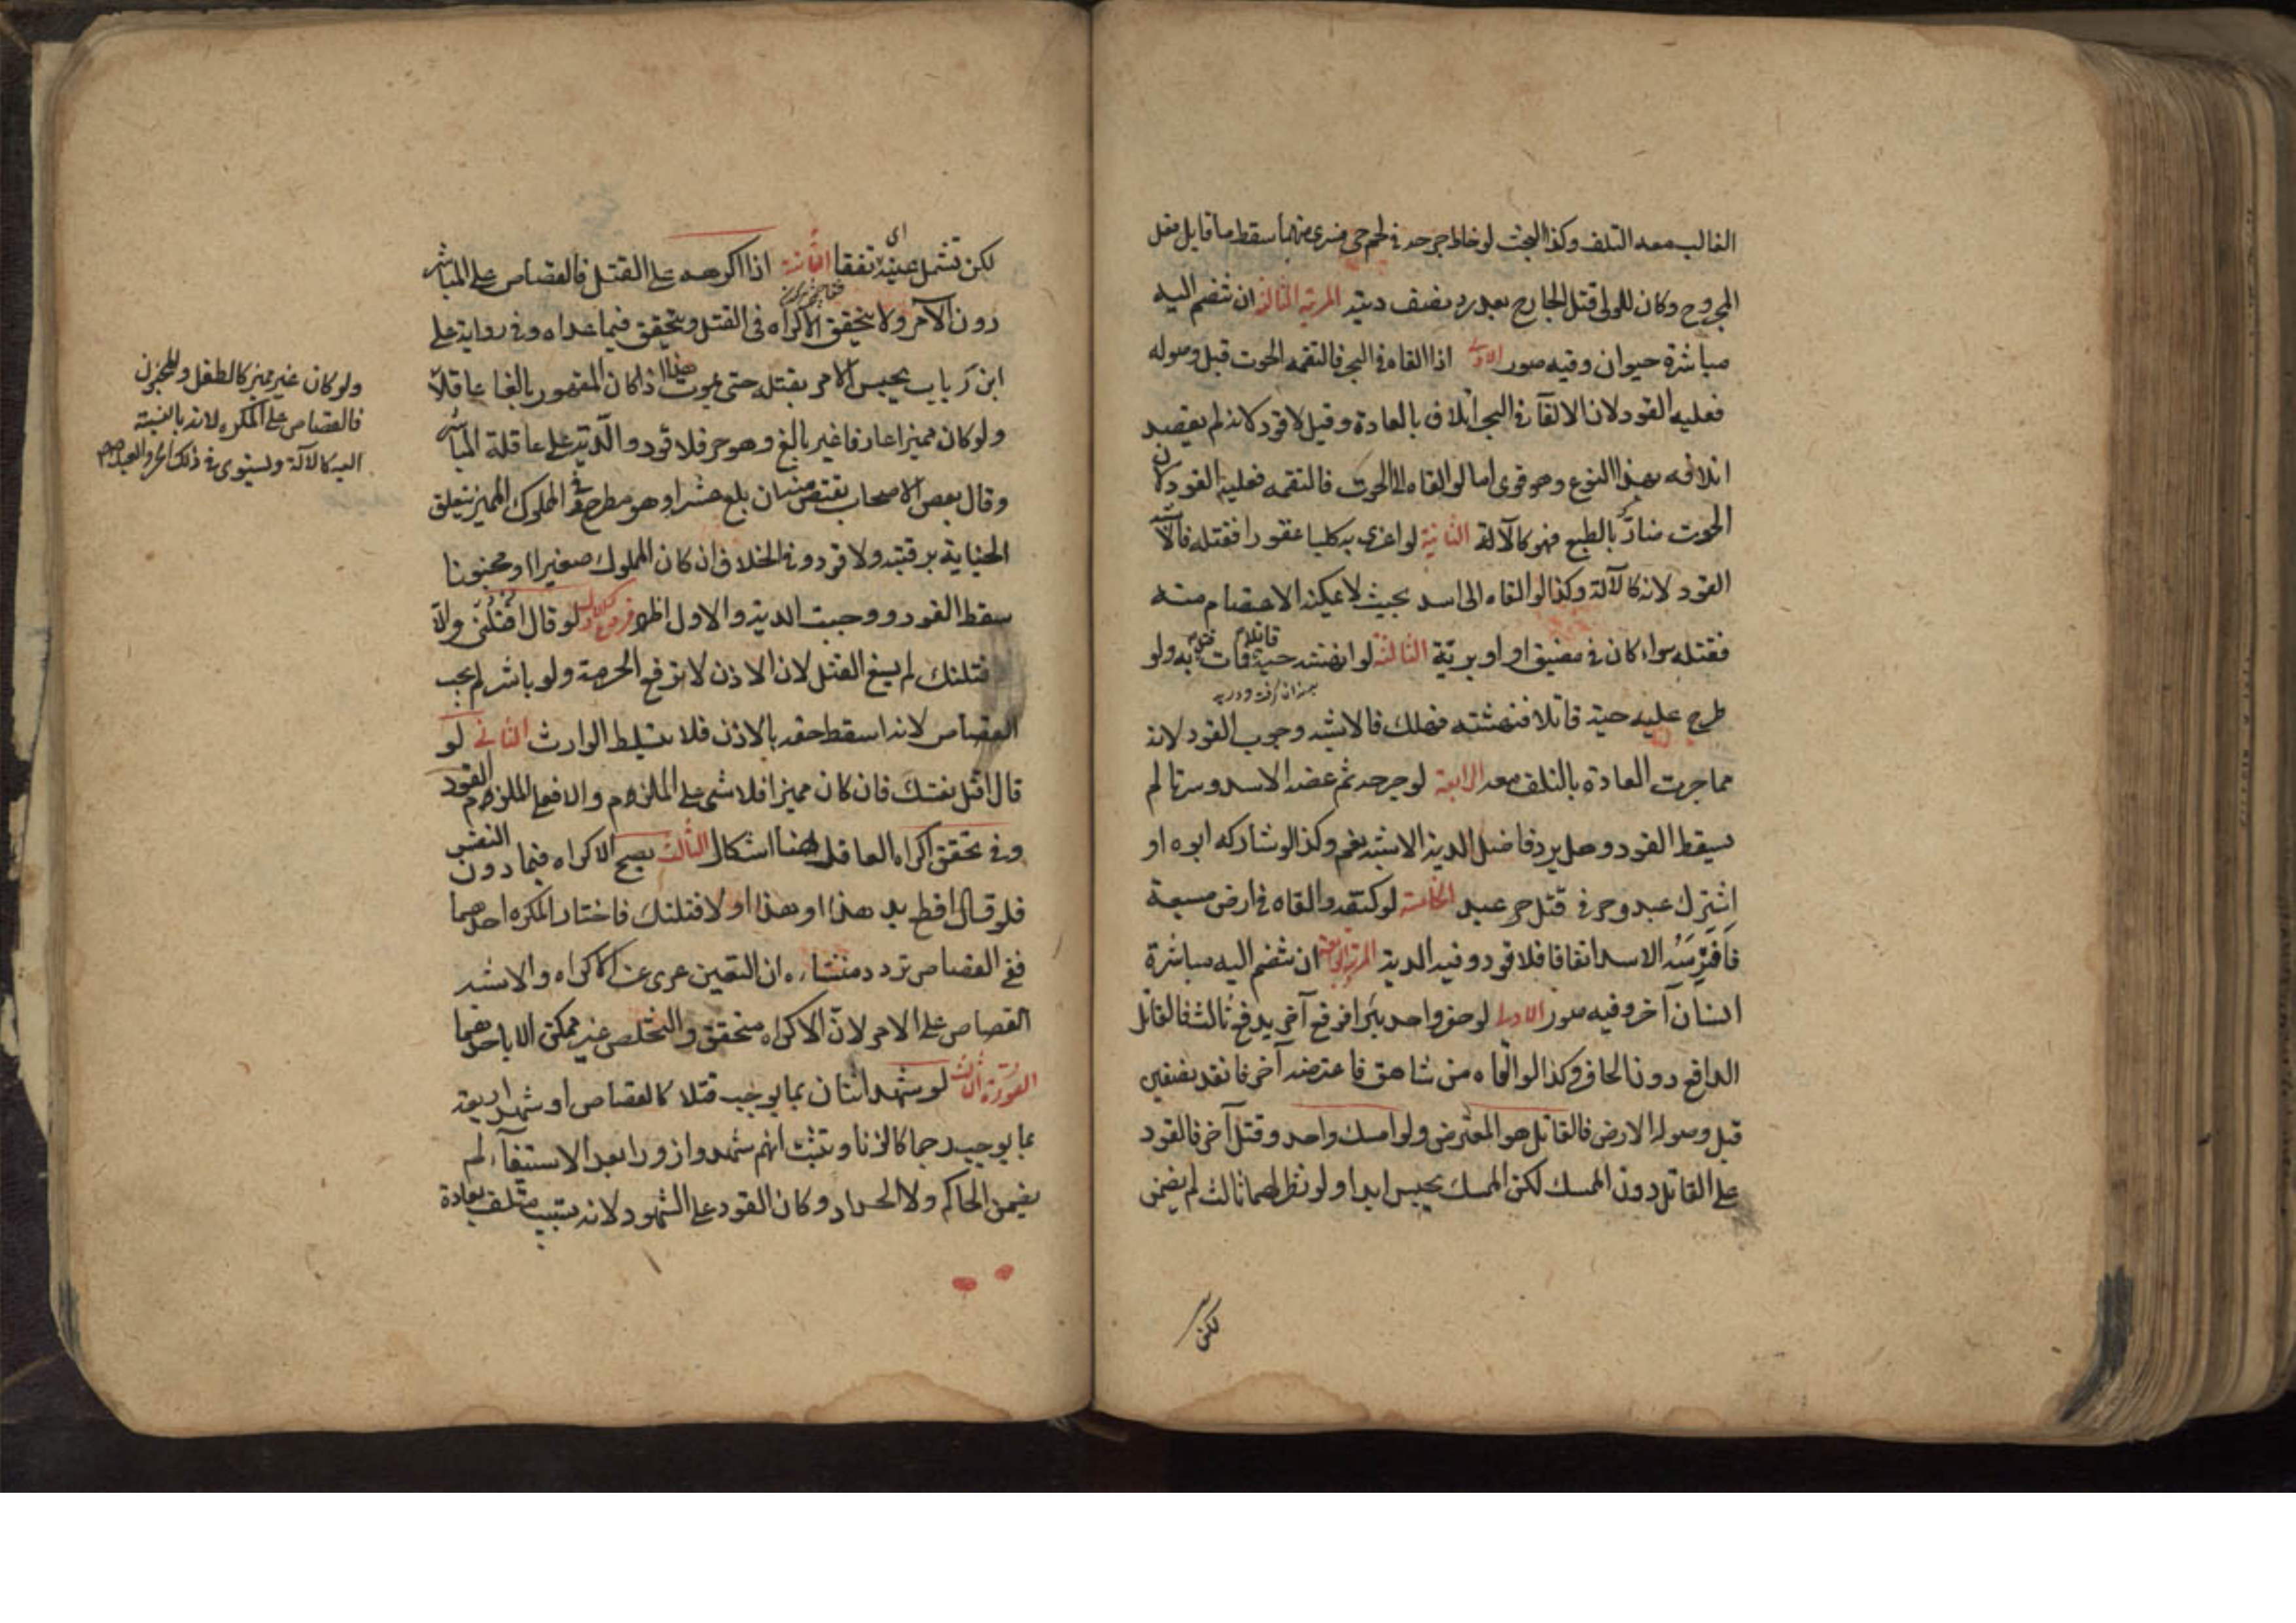 الغالب معه التلف وكذا البحث لو خاط جرحه في لحم حي فسرى منهما سقط ما قابل فعل
المجروح وكان للولي قتل الجارح بعد رد نصف ديته المرتبة الثالثة ان تنضم اليه
مباشرة حيوان وفيه صور الاولى اذا القاه في البحر فالتقمه الحوت قبل وصوله
فعليه القود لان الالقآء في البحر اتلاف بالعادة وقيل لا قود لانه لم يقصد
اتلافه بهذا النوع وهو قوى اما لو القاه الى الحوت فالتقمه فعليه القود لان
الحوت ضارّ بالطبع فهو كالآلة الثانية لو اغرى به كلبا عقورا فقتله فالاشبه
القود لانه كالآلة وكذا لو القاه الى اسد بحيث لا يمكنه الاعتصام منه
فقتله سواء كان في مضيق او بريّة الثالثة لو انهشه حية قاتلا فمات به ولو
طرح عليه حية قاتلا فنهشته فهلك فالاشبه وجوب القود لانه
مما جرت العادة بالتلف معه الرابعة لو جرحه ثم عضه الاسد وسرتا لم
يسقط القود وهل يرد فاضل الدية الاشبه نعم وكذا لو شاركه ابوه او
اشترك عبد وحر في قتل عبد الخامسة لو كتفه والقاه في ارض مسبعة
فَافتَرَسَهُ الاسد اتفاقا فلا قود وفيه الدية المرتبة الرابعة ان تنضم اليه مباشرة
انسان آخر وفيه صور الاولى لو حفر واحد بئرا فوقع آخر بدفع ثالث فالقاتل
الدافع دون الحافر وكذا لو القاه من شاهق فاعترضه آخر فقده نصفين
قبل وصوله الارض فالقاتل هو المعترض ولو امسك واحد وقتل آخر فالقود
على القاتل دون الممسك لكن الممسك يحبس ابدا ولو نظر لهما ثالث لم يضمن
لكن
لكن تسمل عينيه
اى
تفقا الثانية اذا اكرهه على القتل فالقصاص على المباشر
دون الآمر ولا يتحقق الاكراه في القتل ويتحقق فيما عداه وفي رواية على
ابن رياب يحبس الآمر بقتله حتى يموت هذا اذا كان المقهور بالغا عاقلاً
ولو كان مميزا عارفا غير بالغ وهو حر فلا قود والدّية على عاقلة المباشر
وقال بعض الاصحاب يقتص منه ان بلغ عشرا وهو مطرح وفي المملوك المميز يتعلق
الجناية برقبته ولا قود وفي الخلاف ان كان المملوك صغيرا او مجنونا
سقط القود ووجبت الدية والاول اظهر فروع لو قال اقْتُلْنى والّا
قتلتك لم يسغ القتل لان الاذن لا ترفع الحرمة ولو باشر لم يجب
القصاص لانه اسقط حقه بالاذن فلا يتسلط الوارث الثاني لو
قال اقتل نفسك فان كان مميزا فلا شى على الملزم والا فعلى الملزم القود
وفي تحقق اكراه العاقل هنا اشكال الثالث يصح الاكراه فيما دون النفس
فلو قال اقطع يد هذا او هذا او لاقتلنك فاختار المكره احدهما
ففي القصاص تردد منشاءه ان التعين عرى عن الاكراه والاشبه
القصاص على الآمر لانّ الاكراه متحقق والتخلص غير ممكن الا باحدهما
الصورة الثالثة لو شهد اثنان بما يوجب قتلا كالقصاص او شهد اربعة
بما يوجب رجما كالزنا وثبت انهم شهدوا زورا بعد الاستيفآء لم
يضمن الحاكم ولا الحداد وكان القود على الشهود لانه تسبيب متلف بعادة
ولو كان غير مميز كالطفل والمجنون
فالقصاص على المكره لانه بالنسبة
اليه كالآلة ويستوى في ذلك الحر والعبد صح